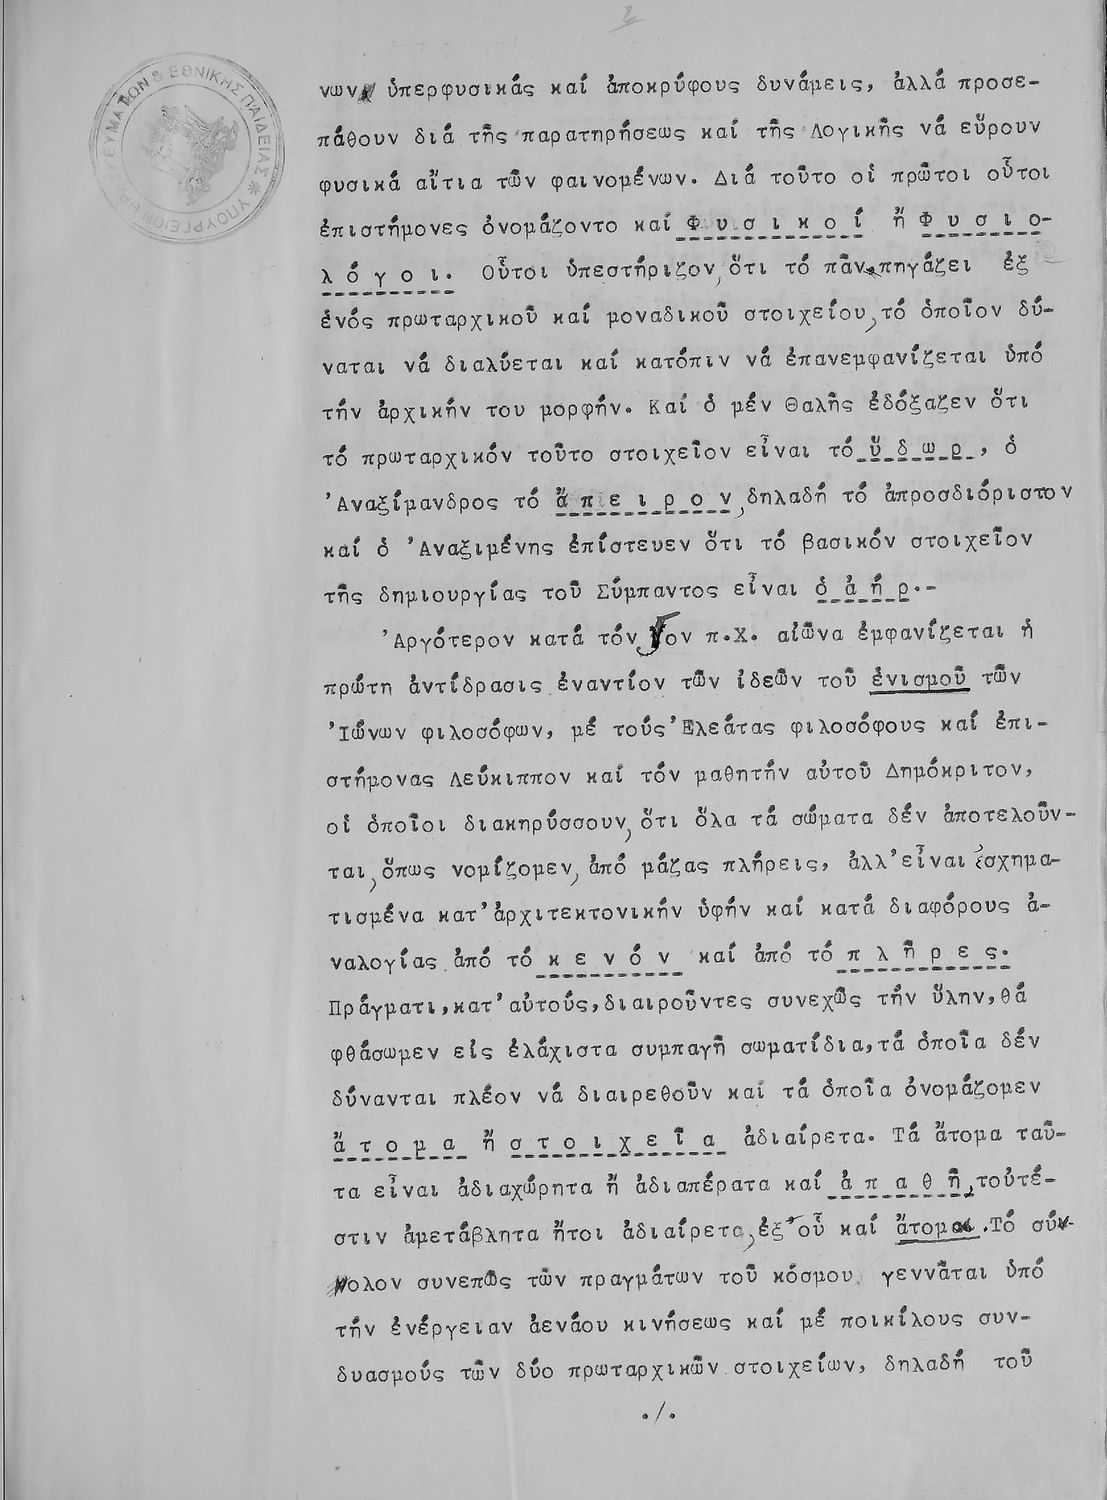 2
ΥΠΟΥΡΓΕΙΟΝ ΘΡΗΣΚΕΥΜΑΤΩΝ & ΕΘΝΙΚΗΣ ΠΑΙΔΕΙΑΣ
νων ὑπερφυσικάς καί ἀποκρύφους δυνάμεις, ἀλλά προσε-
πάθουν διά τῆς παρατηρήσεως καί τῆς Λογικῆς νά εὕρουν
φυσικά αἴτια τῶν φαινομένων. Διά τοῦτο οἱ πρῶτοι οὗτοι
ἐπιστήμονες ὀνομάζοντο καί Φ υ σ ι κ ο ί ἤ Φ υ σ ι ο-
λ ό γ ο ι. Οὗτοι ὑπεστήριζον, ὅτι τό πᾶν πηγάζει ἐξ
ἑνός πρωταρχικοῦ καί μοναδικοῦ στοιχείου, τό ὁποῖον δύ-
ναται νά διαλύεται καί κατόπιν νά ἐπανεμφανίζεται ὑπό
τήν ἀρχικήν του μορφήν. Καί ὁ μέν Θαλῆς ἐδόξαζεν ὅτι
τό πρωταρχικόν τοῦτο στοιχεῖον εἶναι τό ὕ δ ω ρ , ὁ
Ἀναξίμανδρος τό ἄ π ε ι ρ ο ν, δηλαδή τό ἀπροσδιόριστον
καί ὁ Ἀναξιμένης ἐπίστευεν ὅτι τό βασικόν στοιχεῖον
τῆς δημιουργίας τοῦ Σύμπαντος εἶναι ὁ ἀ ή ρ.-
Ἀργότερον κατά τόν 5ον π.Χ. αἰῶνα ἐμφανίζεται ἡ
πρώτη ἀντίδρασις ἐναντίον τῶν ἰδεῶν τοῦ ἑνισμοῦ τῶν
Ἰώνων φιλοσόφων, μέ τούς Ἐλεάτας φιλοσόφους καί ἐπι-
στήμονας Λεύκιππον καί τόν μαθητήν αὐτοῦ Δημόκριτον,
οἱ ὁποῖοι διακηρύσσουν, ὅτι ὅλα τά σώματα δέν ἀποτελοῦν-
ται, ὅπως νομίζομεν, ἀπό μάζας πλήρεις, ἀλλ' εἶναι ἐσχημα-
τισμένα κατ' ἀρχιτεκτονικήν ὑφήν καί κατά διαφόρους ἀ-
ναλογίας ἀπό τό κ ε ν ό ν καί ἀπό τό π λ ῆ ρ ε ς.
Πράγματι, κατ' αὐτούς, διαιροῦντες συνεχῶς τήν ὕλην, θά
φθάσωμεν εἰς ἐλάχιστα συμπαγῆ σωματίδια, τά ὁποῖα δέν
δύνανται πλέον νά διαιρεθοῦν καί τά ὁποῖα ὀνομάζομεν
ἄ τ ο μ α ἤ σ τ ο ι χ ε ῖ α ἀδιαίρετα. Τά ἄτομα ταῦ-
τα εἶναι ἀδιαχώρητα ἤ ἀδιαπέρατα καί ἀ π α θ ῆ, τοὐτέ-
στιν ἀμετάβλητα ἤτοι ἀδιαίρετα, ἐξ οὗ καί ἄτομα. Τό σύν-
ολον συνεπῶς τῶν πραγμάτων τοῦ κόσμου γεννᾶται ὑπό
τήν ἐνέργειαν ἀενάου κινήσεως καί μέ ποικίλους συν-
δυασμούς τῶν δύο πρωταρχικῶν στοιχείων, δηλαδή τοῦ
./.